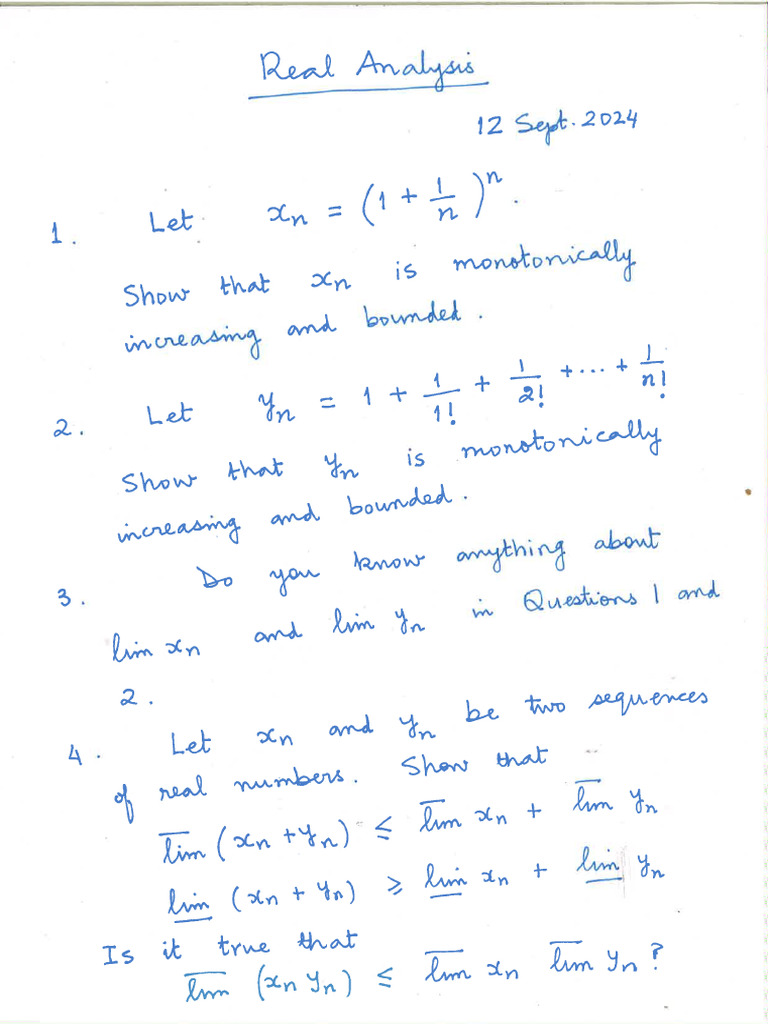 Real Analysis
12 Sept. 2024
1. Let xn = (1 + 1/n)^n.
Show that xn is monotonically
increasing and bounded.
2. Let yn = 1 + 1/1! + 1/2! + ... + 1/n!
Show that yn is monotonically
increasing and bounded.
3. Do you know anything about
lim xn and lim yn in Questions 1 and
2.
4. Let xn and yn be two sequences
of real numbers. Show that
l̅i̅m̅ (xn + yn) ≤ l̅i̅m̅ xn + l̅i̅m̅ yn
l̲i̲m̲ (xn + yn) ≥ l̲i̲m̲ xn + l̲i̲m̲ yn
Is it true that
l̅i̅m̅ (xn yn) ≤ l̅i̅m̅ xn l̅i̅m̅ yn?